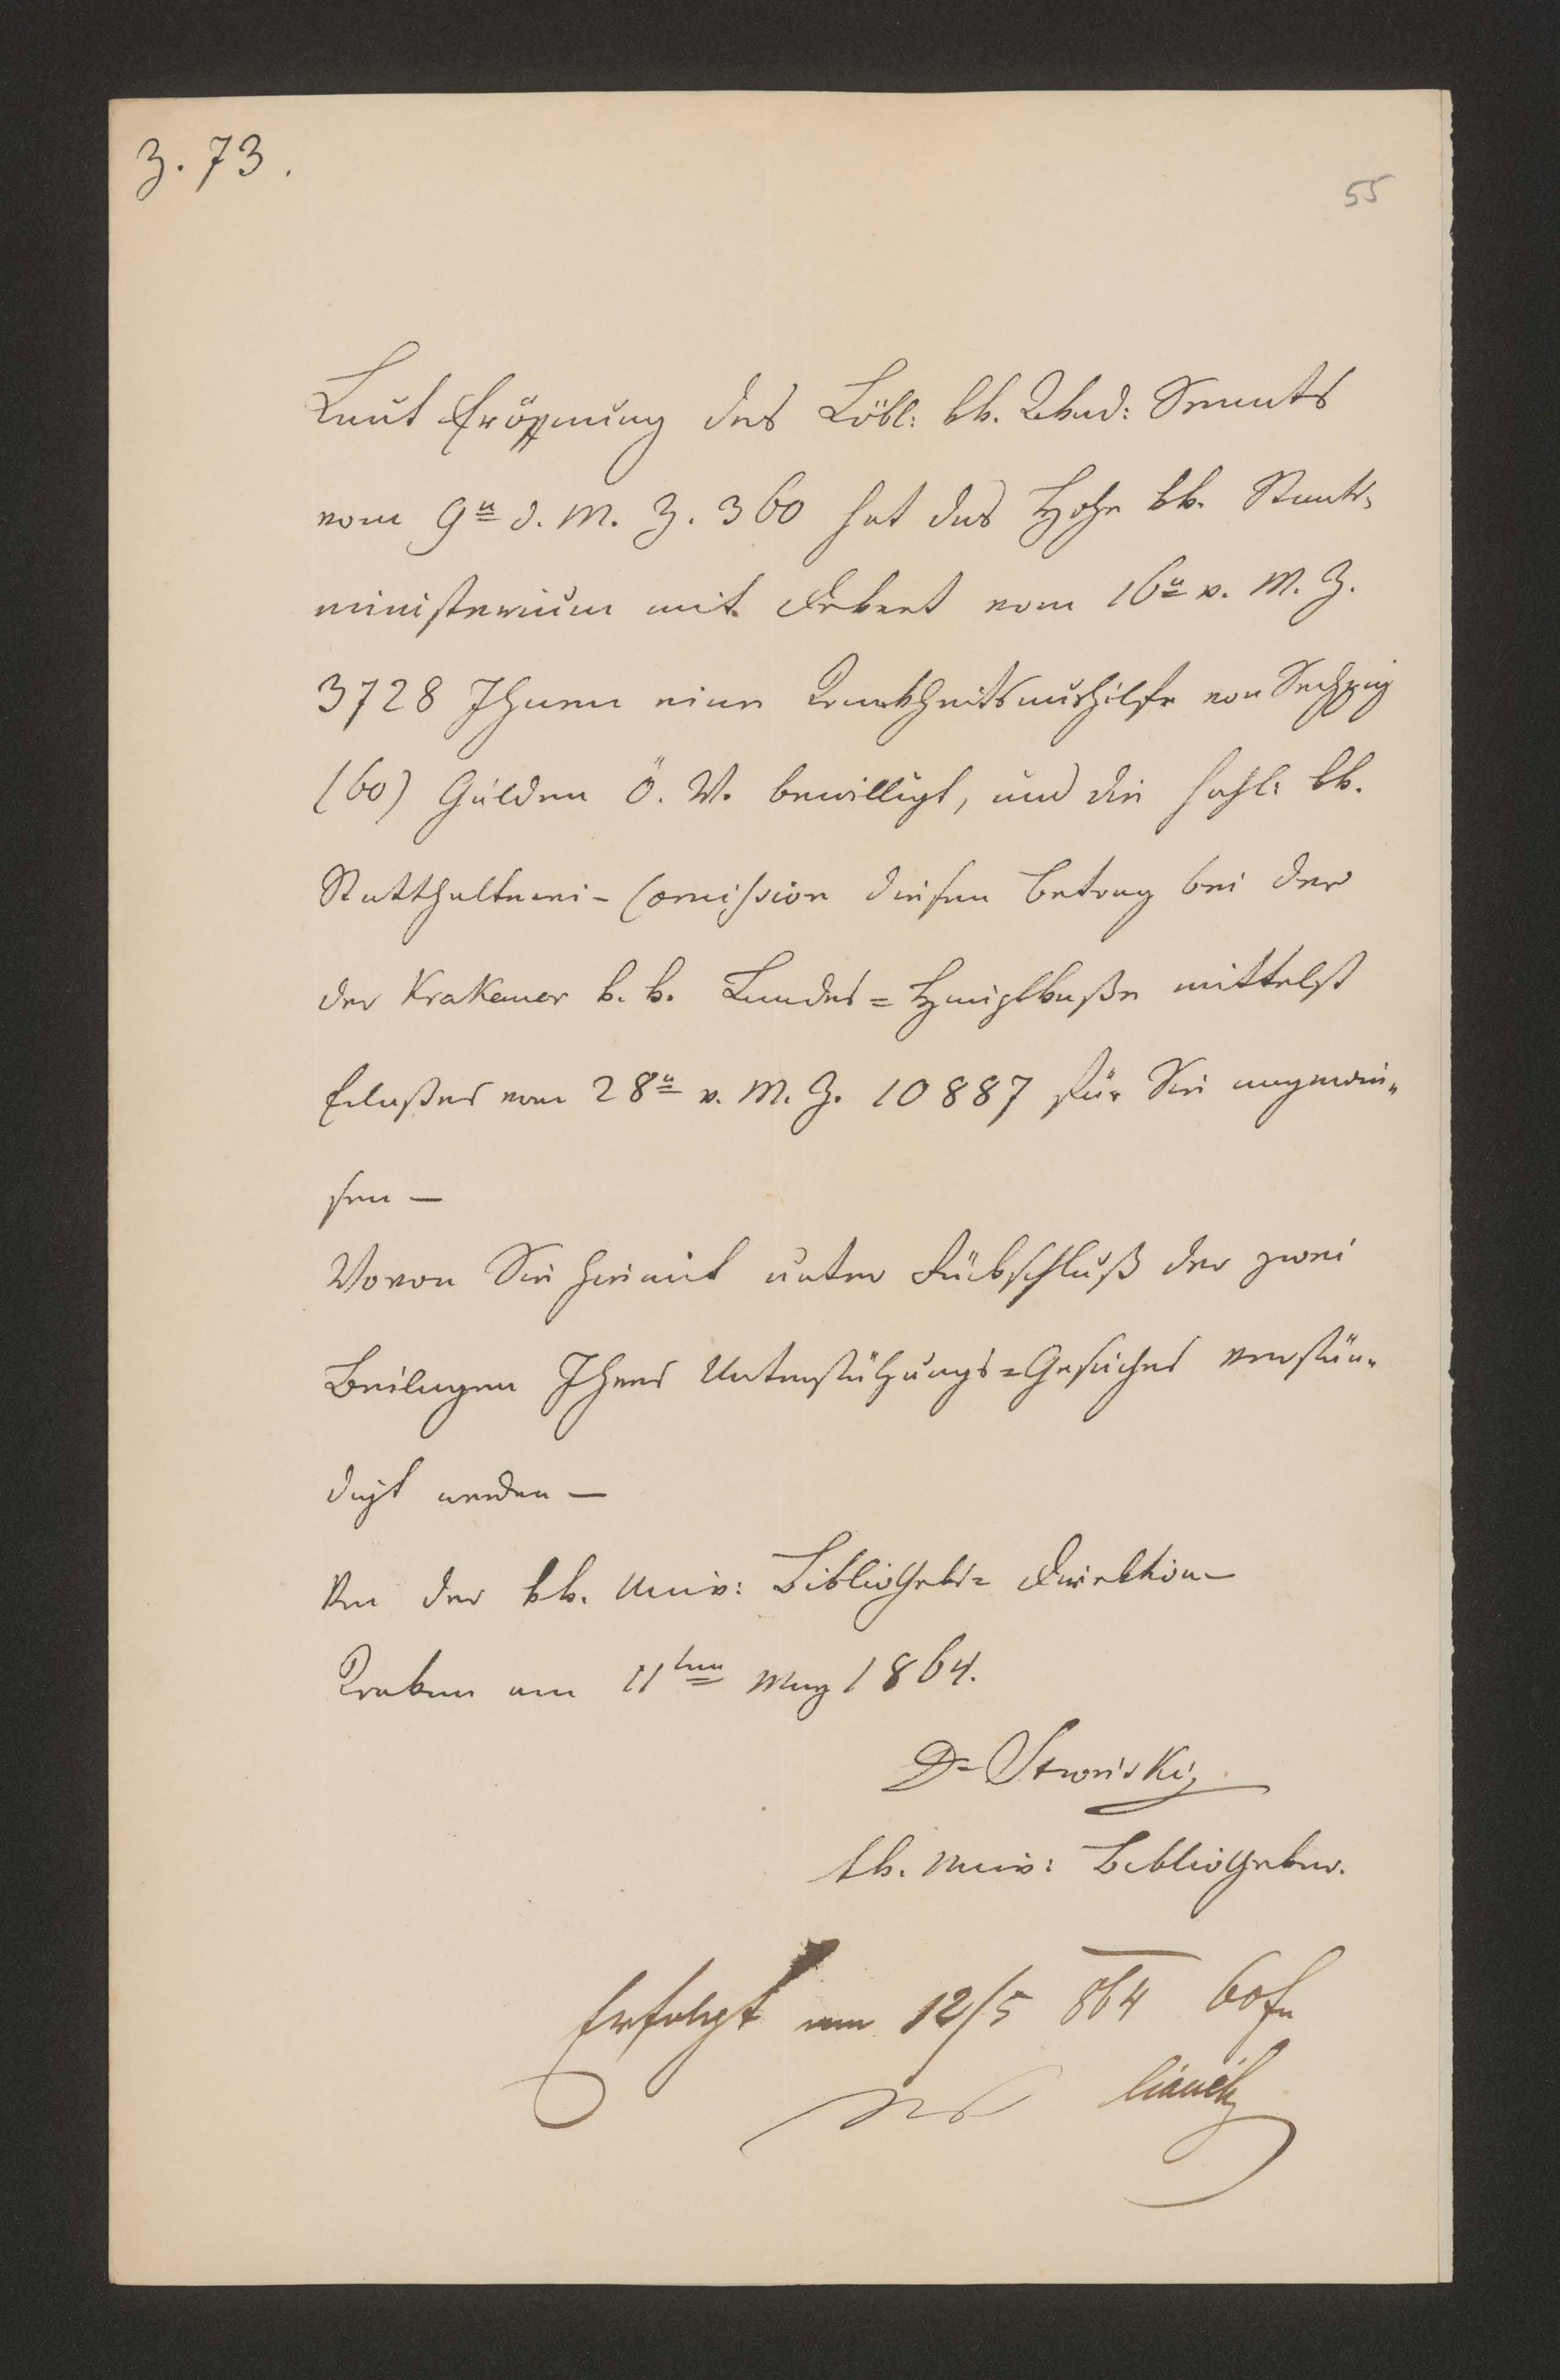 Z. 73.
55
Laut Eröffnung des Löbl: kk. Akad: Senats
vom 9n d. M. Z. 360 hat das Hohe kk. Staats-
ministerium mit Dekret vom 16n v. M. Z.
3728 Ihnen eine Krankheitsaushilfe von Sechzig
(60) Gulden Ö. W. bewilligt, und die hohl: kk.
Statthalterei-Comission diesen Betrag bei der
der Krakauer k. k. Landes=Hauptkaße mittelst
Erlaßes vom 28n v. M. Z. 10887 für Sie angewie-
sen —
Wovon Sie hiemit unter Rückschluß der zwei
Beilagen Ihres Unterstützungs=Gesuches verstän-
digt werden —
Von der kk. Univ: Bibliotheks= Direktion
Krakau am 11ten May 1864.
Dr Stroński
kk. Univ: Bibliothekar.
Erfolgt am 12/5 864 60 fl